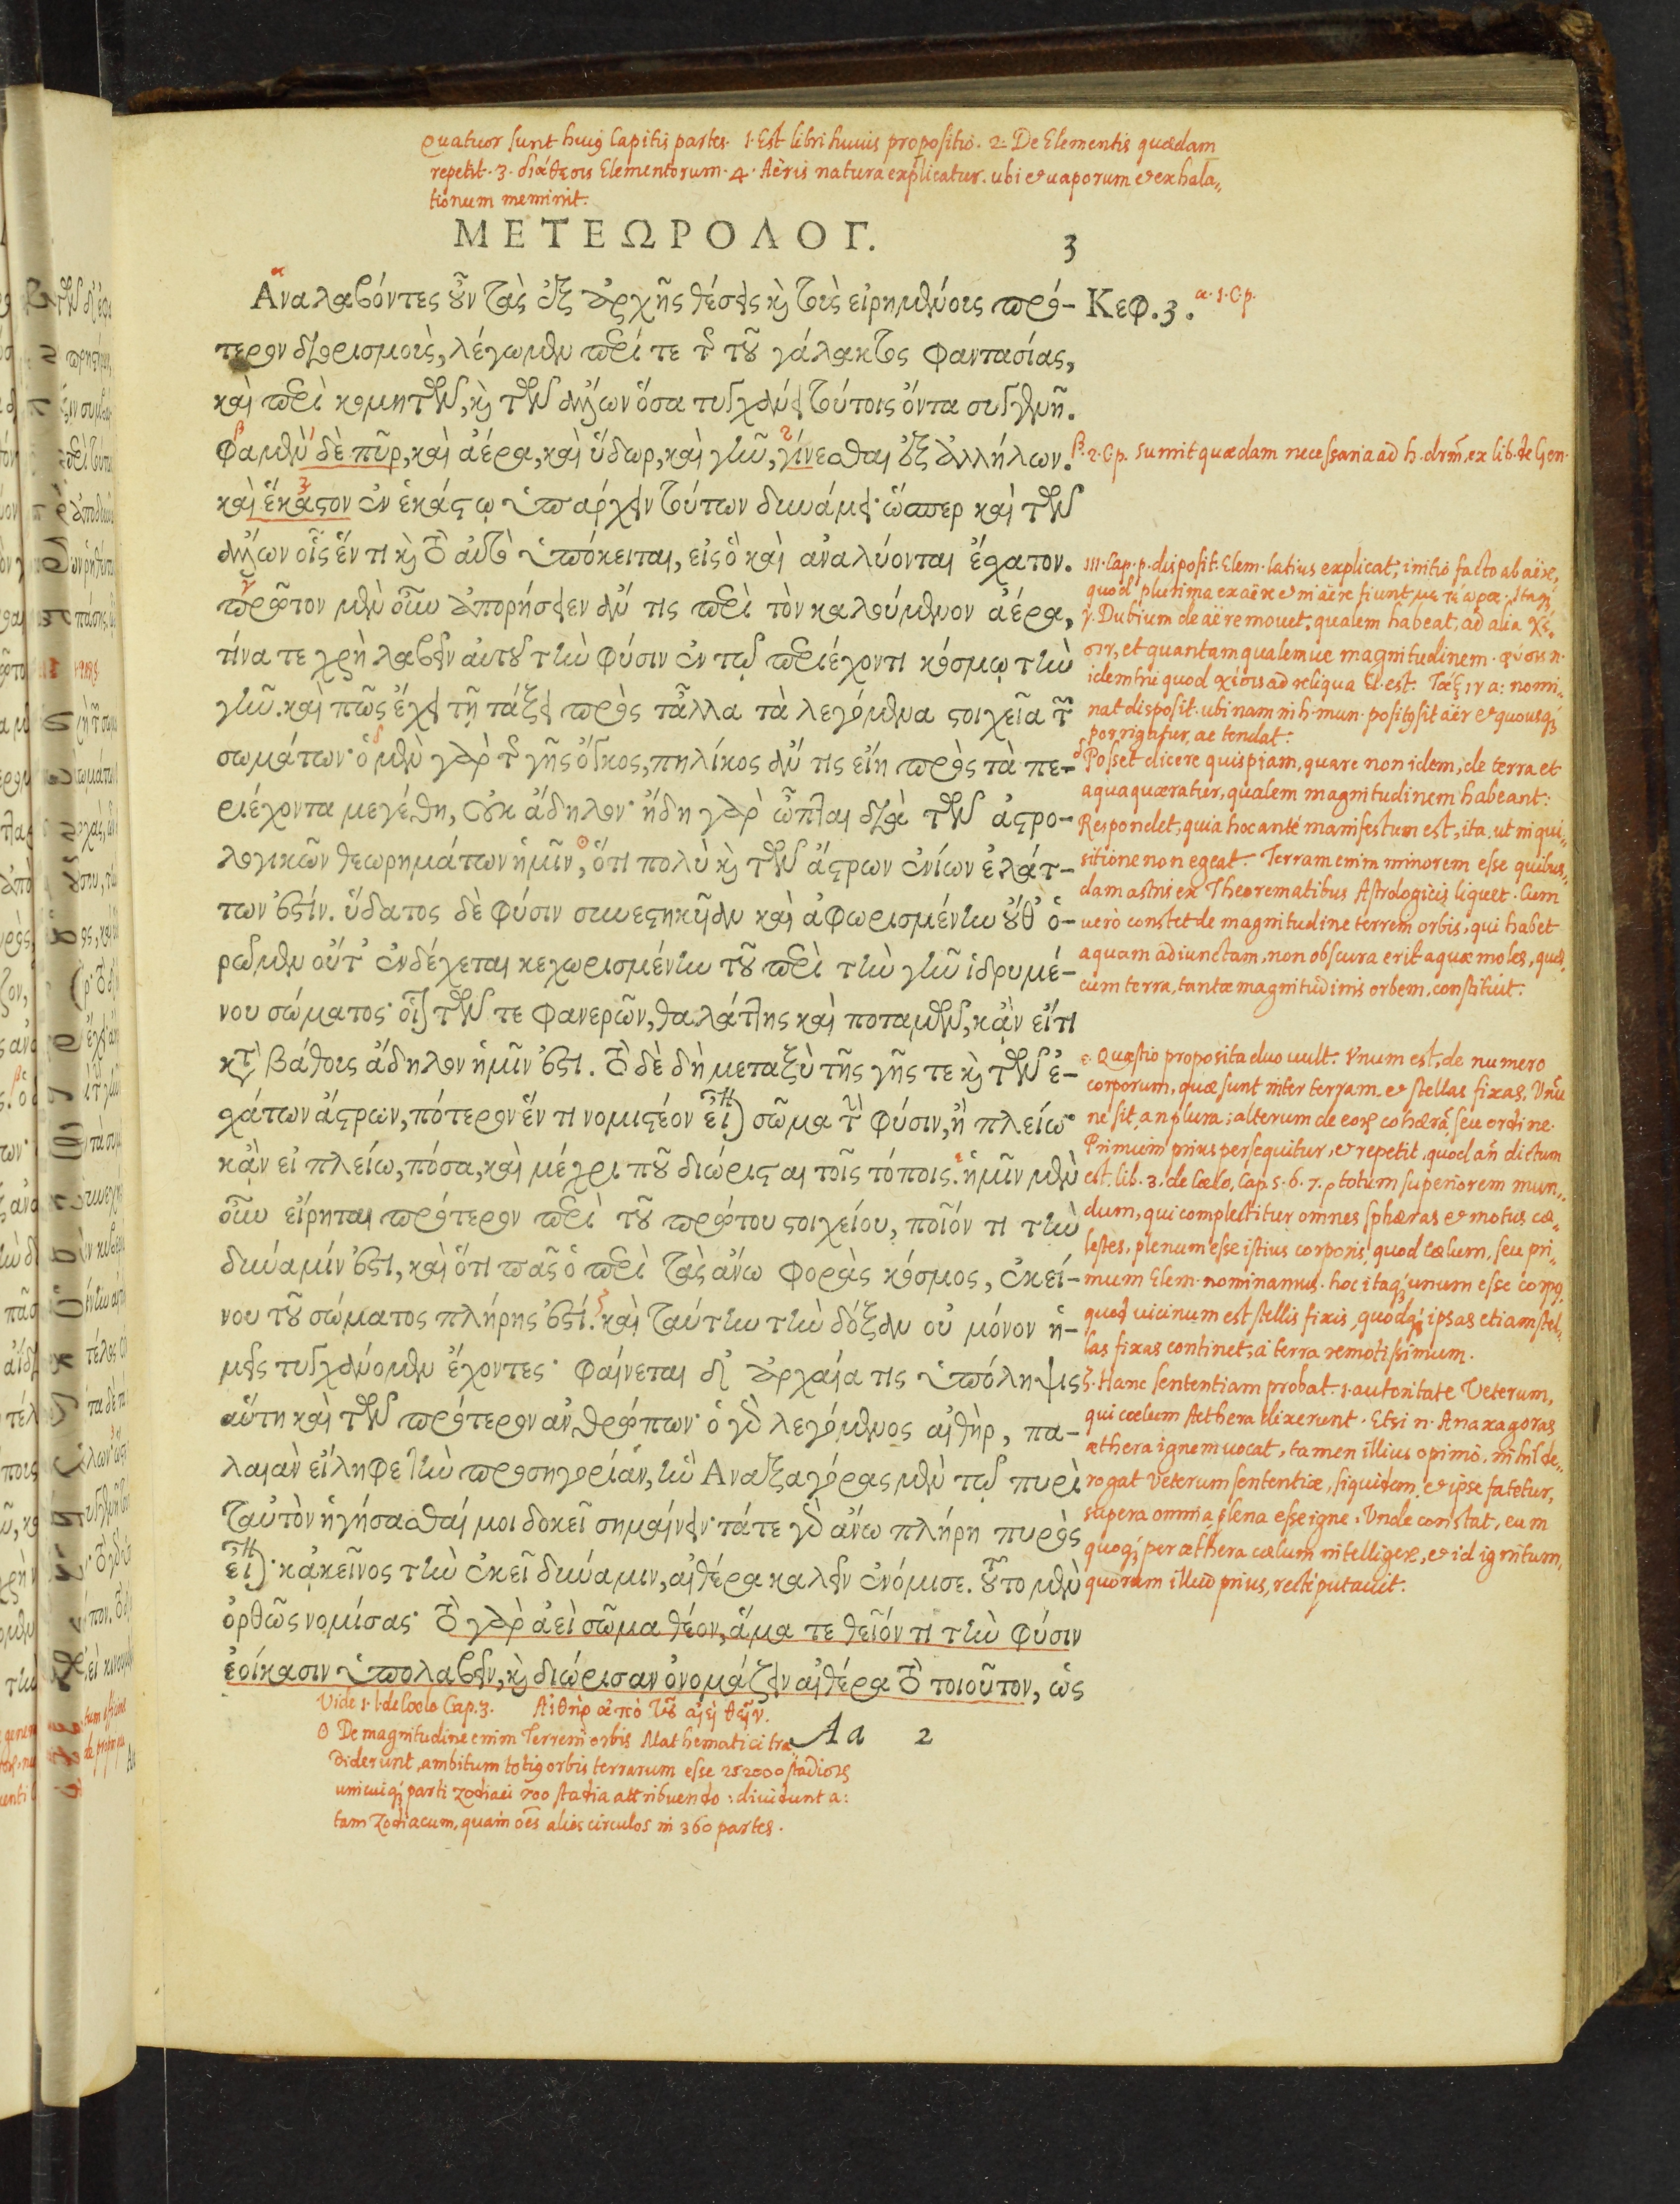 Quatuor sunt huius Capitis partes. 1. Est libri huius propositio. 2. De Elementis quædam
repetit. 3. διάθεσις Elementorum. 4. Aëris natura explicatur. ubi et uaporum et exhala=
tionum meminit.
ΜΕΤΕΩΡΟΛΟΓ. 3
Ἀναλαβόντες οὖν τὰς ἐξ ἀρχῆς θέσεις καὶ τοὺς εἰρημένους πρό-
τερον διορισμοὺς, λέγωμεν περί τε τῆς τοῦ γάλακτος φαντασίας,
καὶ περὶ κομητῶν, καὶ τῶν ἄλλων ὅσα τυγχάνει τούτοις ὄντα συγγενῆ.
Φαμὲν δὲ πῦρ, καὶ ἀέρα, καὶ ὕδωρ, καὶ γῆν, γίνεσθαι ἐξ ἀλλήλων.
καὶ ἕκαστον ἐν ἑκάστῳ ὑπάρχειν τούτων δυνάμει· ὥσπερ καὶ τῶν
ἄλλων οἷς ἕν τι καὶ τὸ αὐτὸ ὑπόκειται, εἰς ὃ καὶ ἀναλύονται ἔσχατον.
πρῶτον μὲν οὖν ἀπορήσειεν ἄν τις περὶ τὸν καλούμενον ἀέρα,
τίνα τε χρὴ λαβεῖν αὐτοῦ τὴν φύσιν ἐν τῷ περιέχοντι κόσμῳ τὴν
γῆν. καὶ πῶς ἔχει τῇ τάξει πρὸς τἆλλα τὰ λεγόμενα στοιχεῖα τῶν
σωμάτων· ὁ μὲν γὰρ τῆς γῆς ὄγκος, πηλίκος ἄν τις εἴη πρὸς τὰ πε-
ριέχοντα μεγέθη, οὐκ ἄδηλον· ἤδη γὰρ ὦπται διὰ τῶν ἀστρο-
λογικῶν θεωρημάτων ἡμῖν, ὅτι πολὺ καὶ τῶν ἄστρων ἐνίων ἐλάτ-
των ἐστίν. ὕδατος δὲ φύσιν συνεστηκυῖαν καὶ ἀφωρισμένην οὔθ' ὁ-
ρῶμεν οὔτ' ἐνδέχεται κεχωρισμένην τοῦ περὶ τὴν γῆν ἱδρυμέ-
νου σώματος· οἷον τῶν τε φανερῶν, θαλάττης καὶ ποταμῶν, κἂν εἴ τι
κατὰ βάθους ἄδηλον ἡμῖν ἐστι. τὸ δὲ δὴ μεταξὺ τῆς γῆς τε καὶ τῶν ἐ-
σχάτων ἄστρων, πότερον ἕν τι νομιστέον εἶναι σῶμα τὴν φύσιν, ἢ πλείω·
κἂν εἰ πλείω, πόσα, καὶ μέχρι ποῦ διώρισται τοῖς τόποις. ἡμῖν μὲν
οὖν εἴρηται πρότερον περὶ τοῦ πρώτου στοιχείου, ποῖόν τι τὴν
δύναμίν ἐστι, καὶ ὅτι πᾶς ὁ περὶ τὰς ἄνω φορὰς κόσμος, ἐκεί-
νου τοῦ σώματος πλήρης ἐστί. καὶ ταύτην τὴν δόξαν οὐ μόνον ἡ-
μεῖς τυγχάνομεν ἔχοντες· φαίνεται δ' ἀρχαία τις ὑπόληψις
αὕτη καὶ τῶν πρότερον ἀνθρώπων· ὁ γὰρ λεγόμενος αἰθὴρ, πα-
λαιὰν εἴληφε τὴν προσηγορίαν, ἣν Ἀναξαγόρας μὲν τῷ πυρὶ
ταὐτὸν ἡγήσασθαί μοι δοκεῖ σημαίνειν· τά τε γὰρ ἄνω πλήρη πυρὸς
εἶναι· κἀκεῖνος τὴν ἐκεῖ δύναμιν, αἰθέρα καλεῖν ἐνόμισε. τοῦτο μὲν
ὀρθῶς νομίσας· τὸ γὰρ ἀεὶ σῶμα θέον, ἅμα τε θεῖόν τι τὴν φύσιν
ἐοίκασιν ὑπολαβεῖν, καὶ διώρισαν ὀνομάζειν αἰθέρα τὸ τοιοῦτον, ὡς
Aa 2
Κεφ. 3. α. 1. C. p.
β. 2. Cp. Sumit quædam necessaria ad h. drm̄. ex lib. de Gen.
III. Cap. p. disposit. Elem. latius explicat, initio facto ab aëre,
quod plurima ex aëre et in aëre fiunt μετέωρα. Itaq;
γ. Dubium de aëre mouet, qualem habeat, ad alia χέ=
σιν, et quantam qualemue magnitudinem. φύσις n.
idem hic quod χέσις ad reliqua El. est. Τάξιν a: nomi=
nat disposit. ubi nam in h. mun. positus sit aër et quousq;
porrigatur, ac tendat:
δ Posset dicere quispiam, quare non idem, de terra et
aqua quæratur, qualem magnitudinem habeant:
Respondet, quia hoc ante manifestum est, ita, ut inqui=
sitione non egeat. Terram enim minorem esse quibus=
dam astris ex Theorematibus Astrologicis liquet. Cum
uerò constet de magnitudine terreni orbis, qui habet
aquam adiunctam, non obscura erit aquæ moles, quæ
cum terra, tantæ magnitudinis orbem, constituit.
ε. Quæstio proposita duo uult. Vnum est, de numero
corporum, quæ sunt inter terram et stellas fixas, Vnū
ne sit an plura; alterum de eorum cohærā seu ordine.
Primum prius persequitur, et repetit, quod añ dictum
est. lib. 3. de Cœlo, Cap. 5. 6. 7. totum superiorem mun=
dum, qui complectitur omnes sphæras et motus cœ=
lestes, plenum esse istius corporis, quod cœlum, seu pri=
mum Elem. nominamus. hoc itaq; unum esse corpus
quod uicinum est stellis fixis, quodq; ipsas etiam stel=
las fixas continet, à terra remotissimum.
ζ. Hanc sententiam probat. 1. autoritate Veterum,
qui cœlum Aethera dixerunt. Etsi n. Anaxagoras
æthera ignem uocat, tamen illius opinio, nihil de=
rogat Veterum sententiæ, siquidem et ipse fatetur,
supera omnia plena esse igne. Vnde constat, eum
quoq; per æthera cœlum intelligere, et id ignitum,
quorum illud prius, recte putauit.
Vide 1. l. de Cœlo Cap. 3. Αἰθὴρ ἀπὸ τοῦ αἰεὶ θεῖν.
Θ De magnitudine enim Terreni orbis Mathematici tra=
diderunt, ambitum totius orbis terrarum esse 252000 stadiorum
unicuiq; parti Zodiaci 700 stadia attribuendo: diuidunt a:
tam Zodiacum, quam oēs alios circulos in 360 partes.